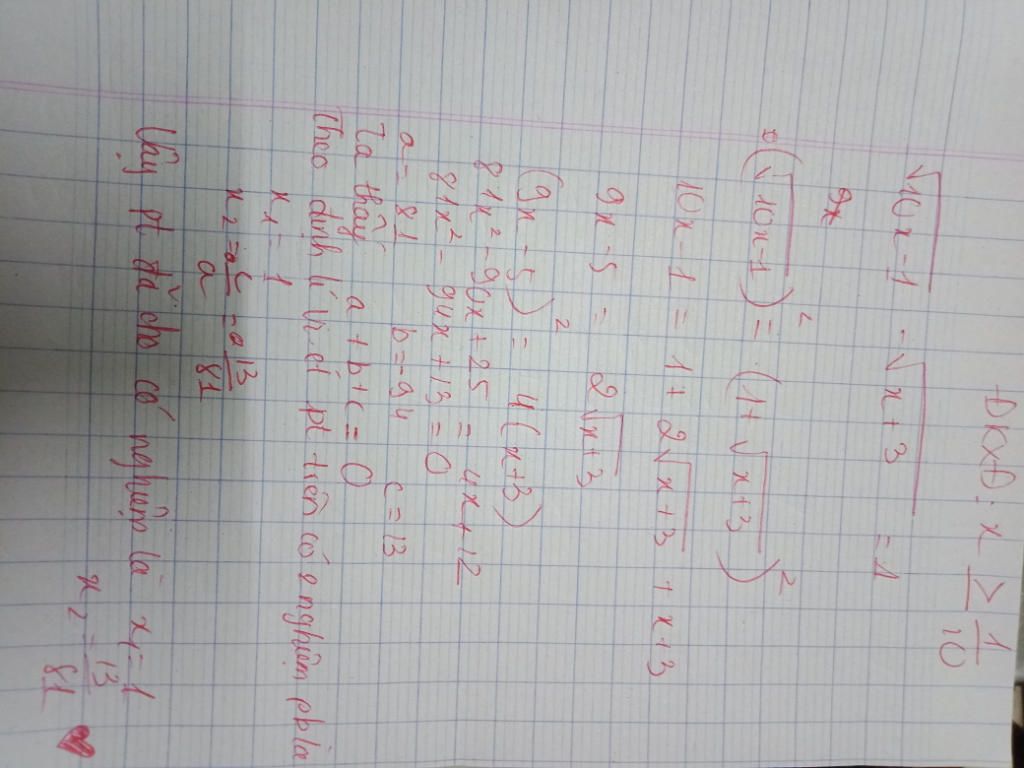 ĐKXĐ: x ≥ 1/10
√10x-1 - √x+3 = 1
9x
(√10x-1)² = (1+√x+3)²
10x-1 = 1 + 2√x+3 + x+3
9x-5 = 2√x+3
(9x-5)² = 4(x+3)
81x² - 90x + 25 = 4x + 12
81x² - 94x + 13 = 0
a = 81 b = -94 c = 13
Ta thấy a + b + c = 0
Theo định lí Vi-ét pt trên có 2 nghiệm pb là
x₁ = 1
x₂ = c/a = 13/81
Vậy pt đã cho có nghiệm là x₁ = 1
x₂ = 13/81